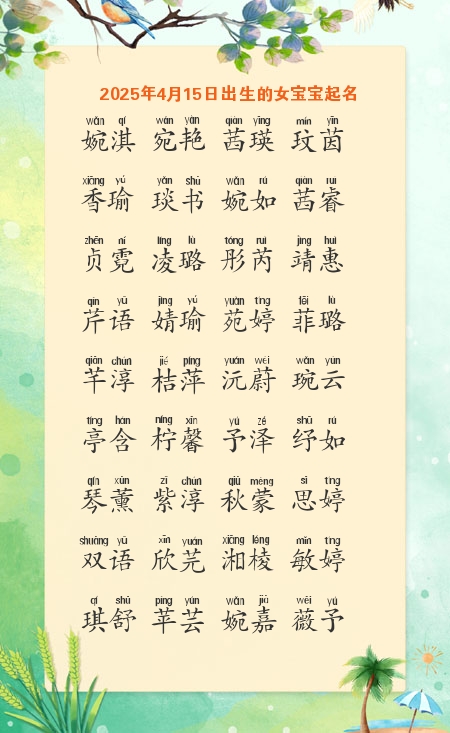 2025年4月15日出生的女宝宝起名
wǎn qí wǎn yàn qiàn yīng mín yīn
婉淇 宛艳 茜瑛 玟茵
xiāng yú yǎn shū wǎn rú qiàn ruì
香瑜 琰书 婉如 茜睿
zhēn ní líng lù tóng ruì jìng huì
贞霓 凌璐 彤芮 靖惠
qín yǔ jìng yú yuàn tíng fēi lù
芹语 婧瑜 苑婷 菲璐
qiān chún jié píng yuán wèi wǎn yún
芊淳 桔萍 沅蔚 琬云
tíng hán níng xīn yú zé shū rú
亭含 柠馨 予泽 纾如
qín xūn zǐ chún qiū méng sī tíng
琴薰 紫淳 秋蒙 思婷
shuāng yǔ xīn yuán xiāng léng mǐn tíng
双语 欣芫 湘棱 敏婷
qí shū píng yún wǎn jiā wēi yú
琪舒 苹芸 婉嘉 薇予